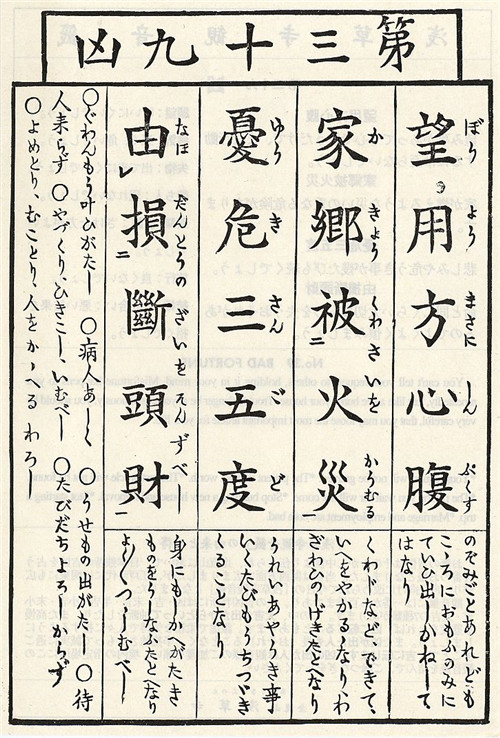 第三十九凶
望用方心腹
ぼう よう まさに しん ぷくす
のぞみごとあれども
こゝろにおもふのみに
ていひ出しかねして
はなり
家郷被二火災
か きょう くわさいを かうむる
くわじなど、できて、
いへをやかるゝなり、わ
ざわひのしげきたとへなり
憂危三五度
ゆう き さん ご ど
うれいあやうき事
いくたびもうちつゞき
ることなり
由レ損二斷頭財一
なほ だんとうのざいをそんずべし
身にもしかへがたき
ものをうしなふたとへなり
よく〳〵つゝしむべし
○ぐわんもう叶ひがたし ○病人あしく ○うせもの出がたし ○待
人来らず ○やづくり、ひきこし、いむべし ○たびだちよろしからず
○よめとり、むことり、人をかゝへるわろし